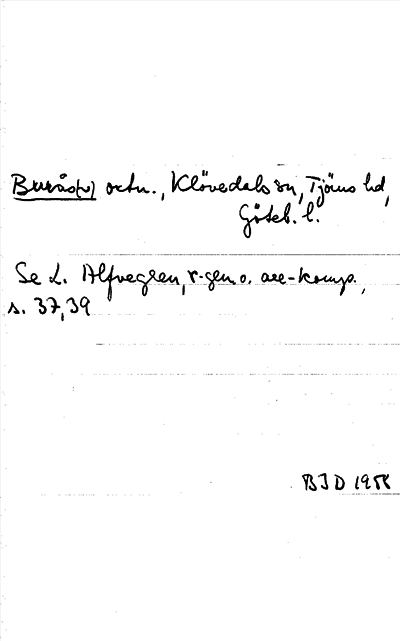 Burås(v) ortn., Klövedals sn, Tjörns hd,
Göteb. l.
Se L. Alfvegren, r-gen. o. are-komp.,
s. 37, 39
BJD 1958